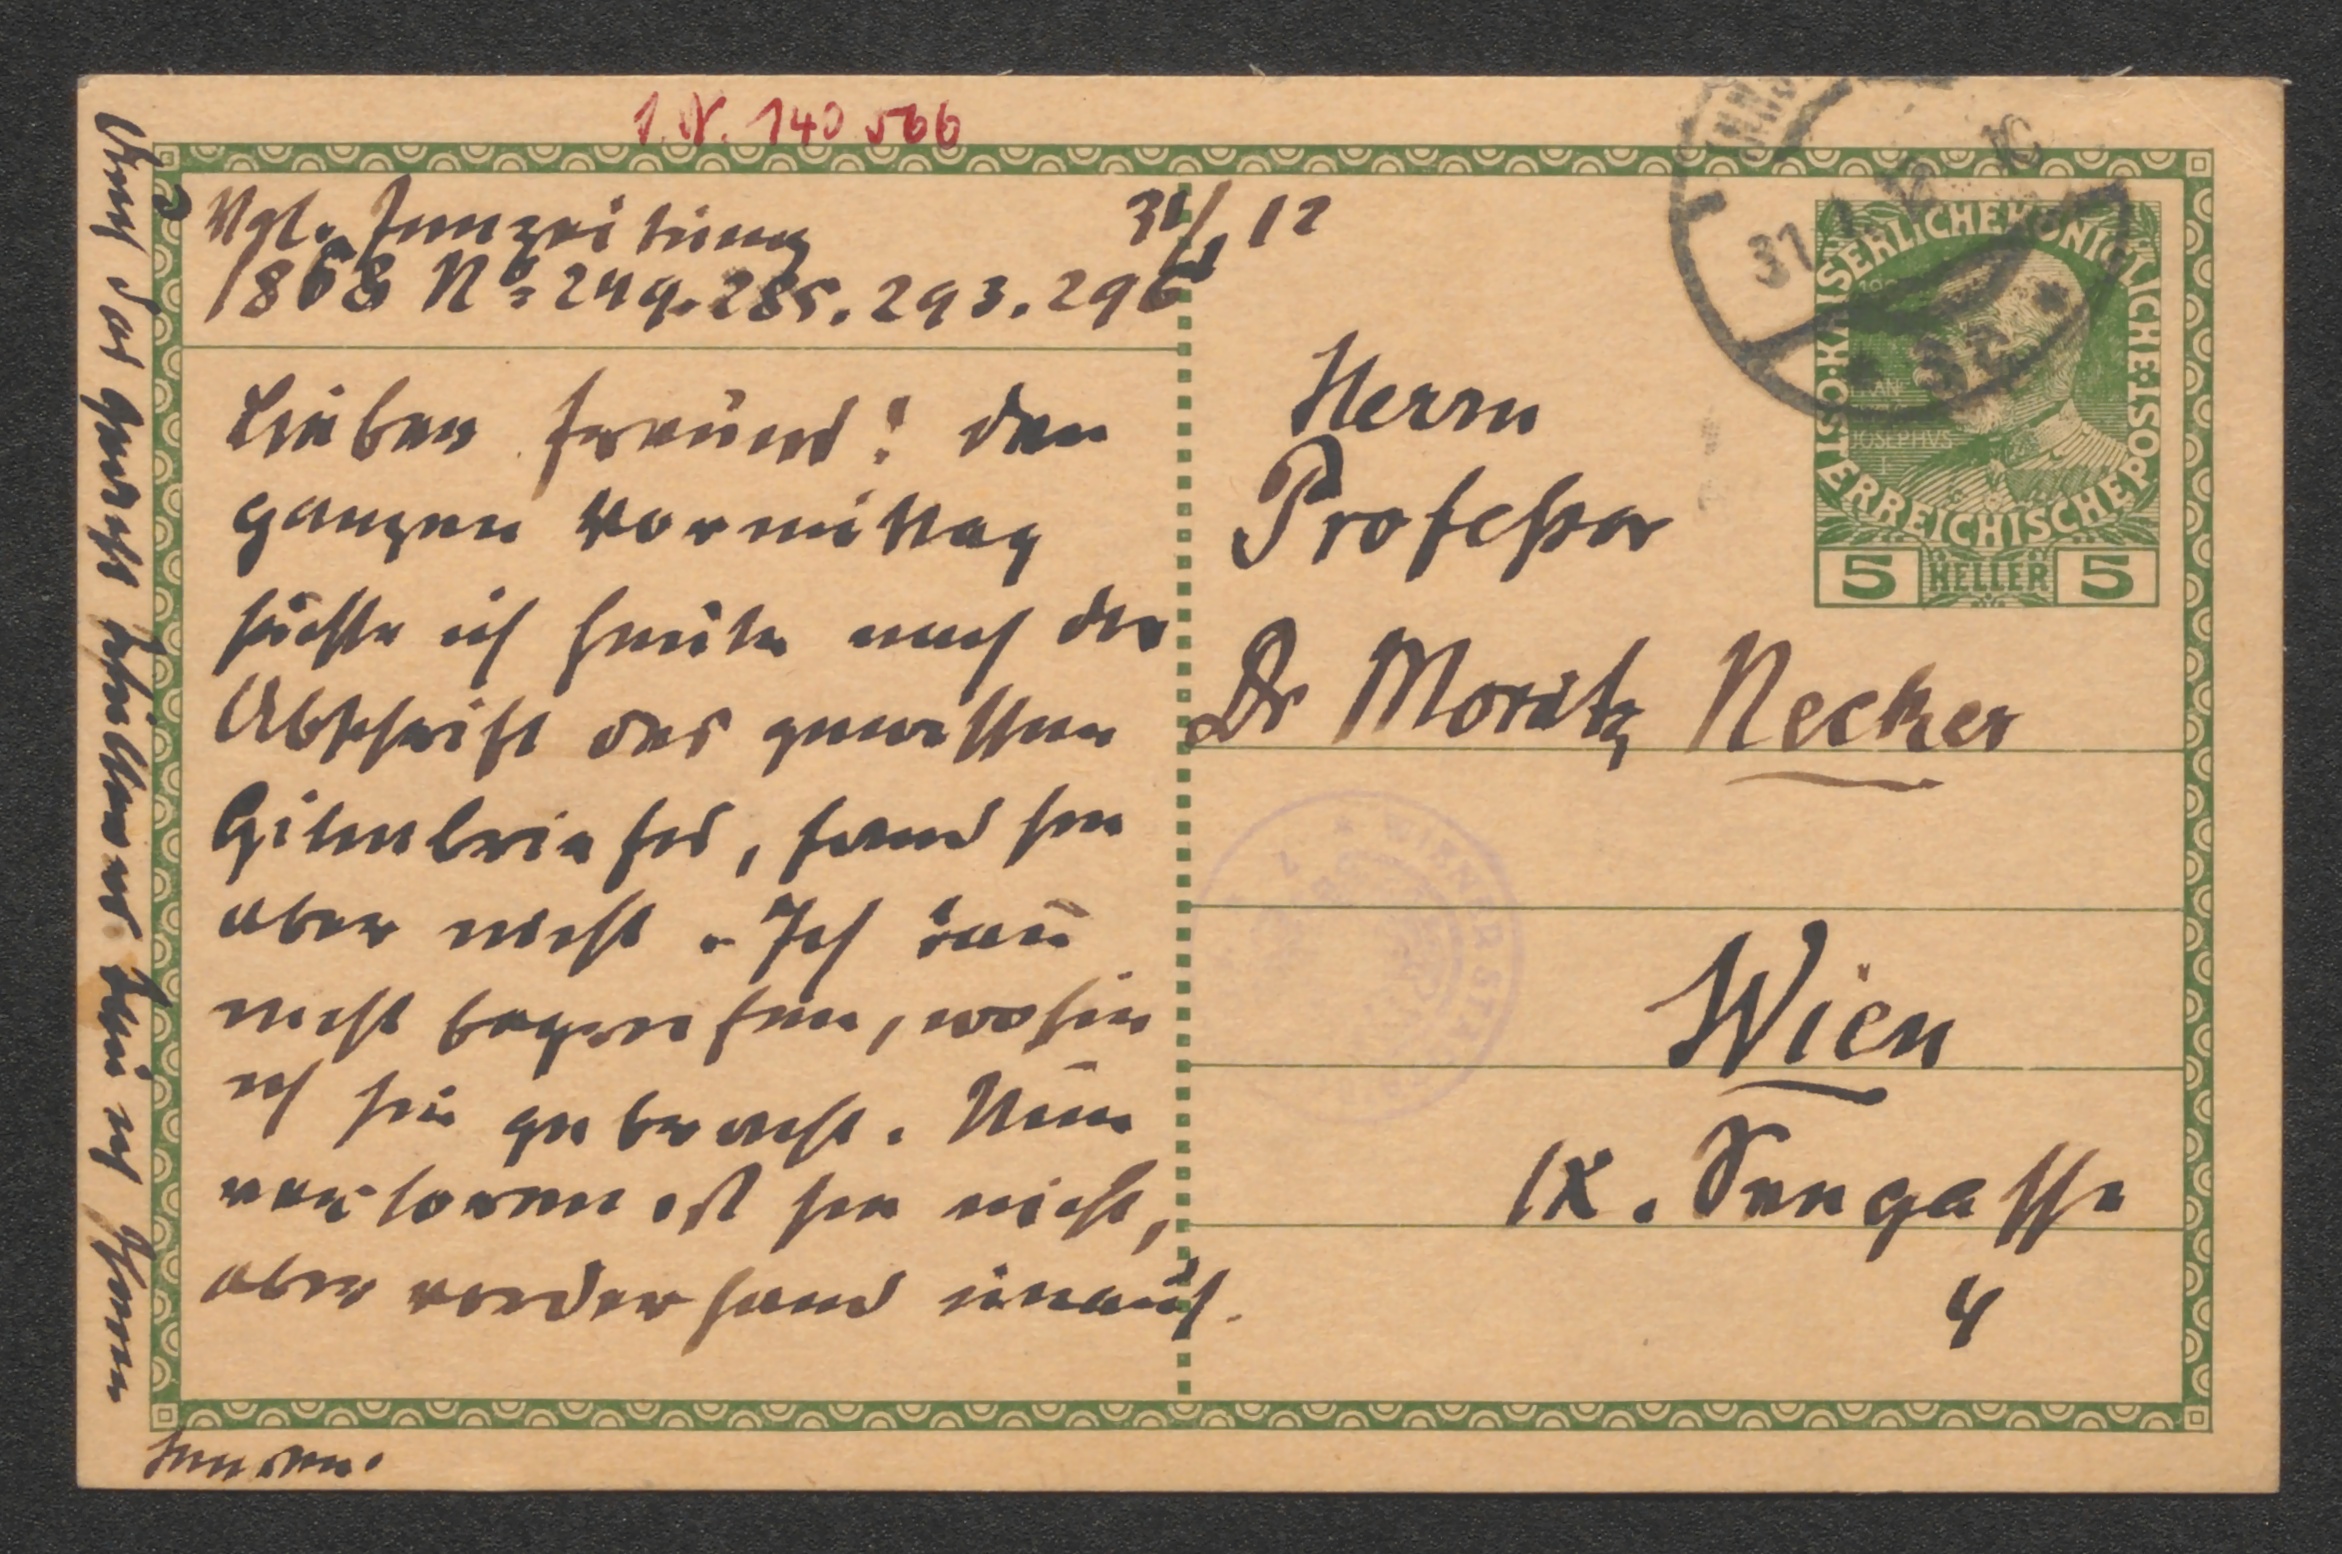 I. N. 140 566
Vgl. Innzeitung
1868 No 249. 285. 293. 296
31/1 12
Lieber Freund! Den
ganzen Vormittag
suchte ich heute nach der
Abschrift des gewissen
Gilmbriefes, fand sie
aber nicht. Ich kann
nicht begreifen, wohin
ich sie gebracht. Nun
verloren ist sie nicht,
aber vorderhand
Auch das
kann ich Ihnen
Herrn
Professor
Dr Moritz Necker
Wien
IX.
4
KAISERLICHE KÖNIGLICHE
ÖSTERREICHISCHE POST
JOSEPHVS
5 HELLER 5
31
WIENER STADT